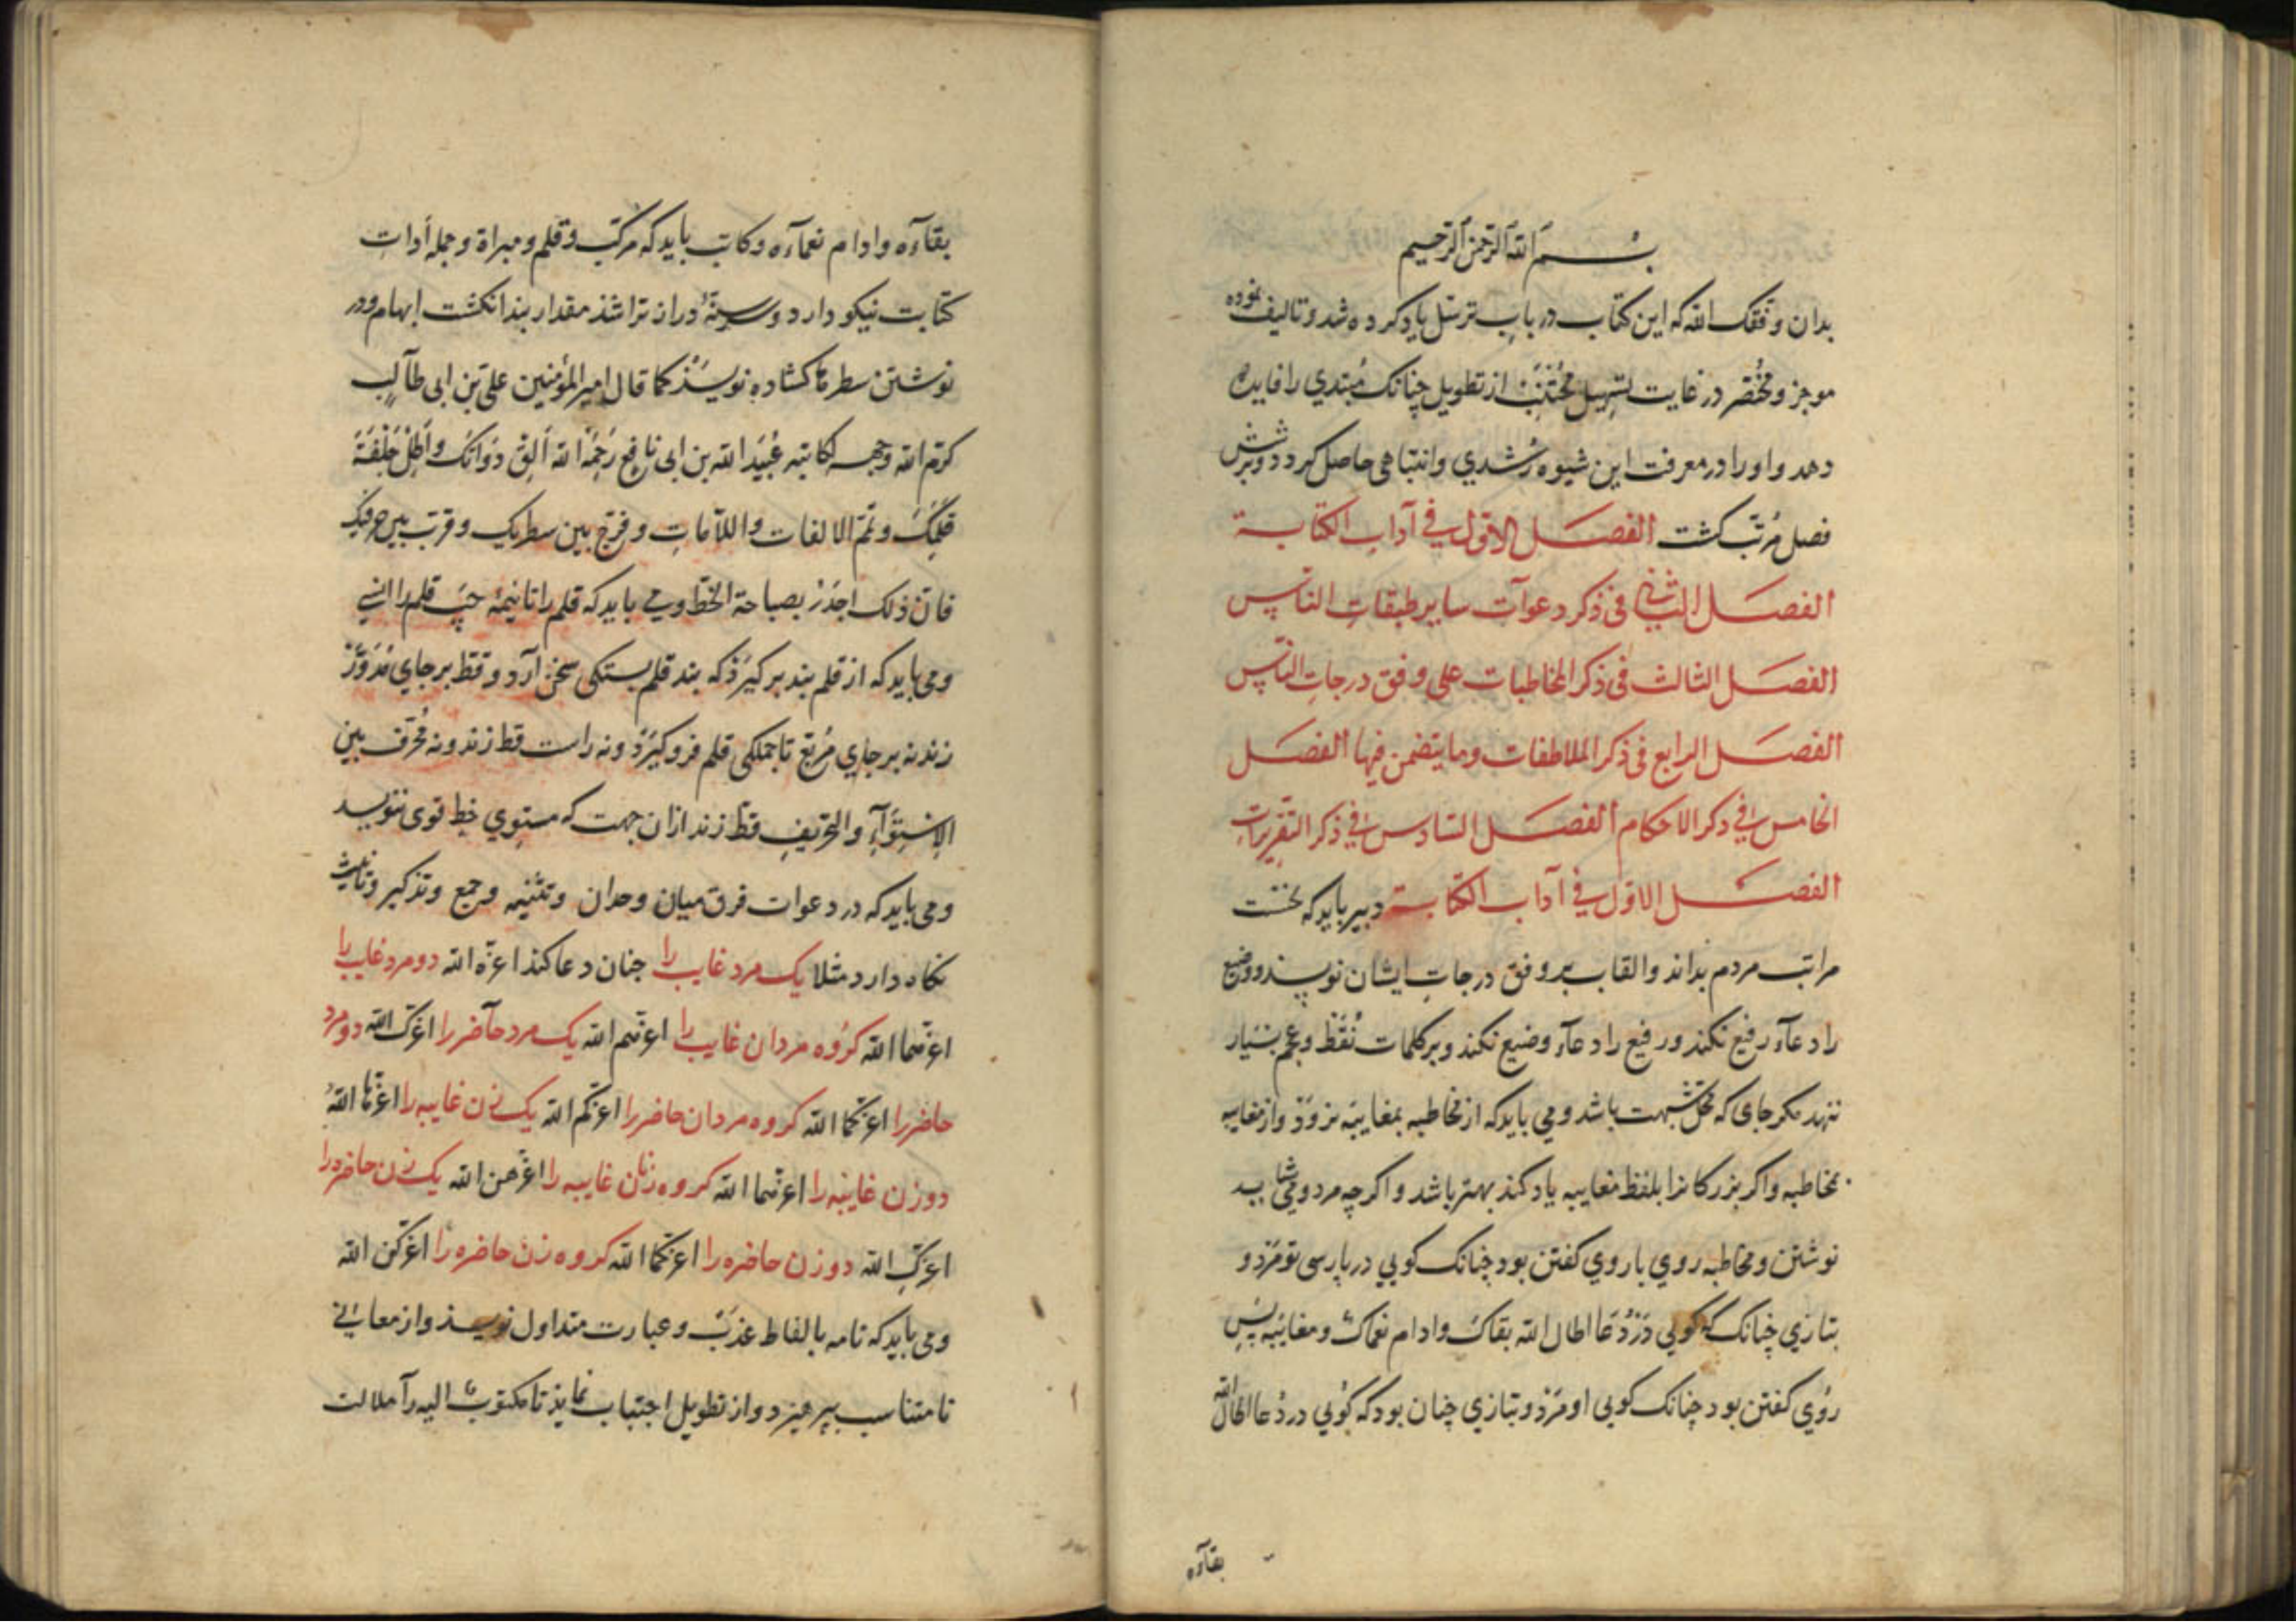 بسم الله الرحمن الرحیم
بدان وفقک الله که این کتاب در باب ترسل یاد کرده شد و تالیف نموده
موجز و مختصر در غایت تسهیل مجتنب از تطویل چنانک مبتدی را فایده
دهد و او را در معرفت این شیوه رشدی و انتباهی حاصل کردد و بر شش
فصل مرتب کشت الفصل الاول فی آداب الکتابة
الفصل الثانی فی ذکر دعوات سایر طبقات الناس
الفصل الثالث فی ذکر المخاطبات علی وفق درجات الناس
الفصل الرابع فی ذکر الملاطفات وما یتضمن فیها الفصل
الخامس فی ذکر الاحکام الفصل السادس فی ذکر التقریرات
الفصل الاول فی آداب الکتابة دبیر باید که نخست
مراتب مردم بداند و القاب بر وفق درجات ایشان نویسد و وضیع
را دعاء رفیع نکند و رفیع را دعاء وضیع نکند و بر کلمات نقط و عجم بسیار
ننهد مکر جای که محل شبهت باشد و می باید که از مخاطبه بمغایبه نرود و از مغایبه
بمخاطبه و اکر بزرکانرا بلفظ مغایبه یاد کند بهتر باشد و اکرچه هر دو می شاید
نوشتن و مخاطبه روی با روی کفتن بود چنانک کویی در پارسی تو مرد و
بتازی چنانک که کویی در دعا اطال الله بقاک و ادام نعماک و مغایبه پس
روی کفتن بود چنانک کویی او مرد و بتازی چنان بود که کویی در دعا اطال الله
بقاءه
بقاءه و ادام نعماءه و کاتب باید که مرکب و قلم و مبراة و جمله ادات
کتابت نیکو دارد و سینهٔ دراز تراشد مقدار بند انکشت ابهام و در
نوشتن سطرها کشاده نویسد کما قال امیر المؤمنین علی بن ابی طالب
کرم الله وجهه لکاتبه عبید الله بن ابی نافع رحمه الله ألق دواتک و أطل جلفة
قلمک و تمم الالفات واللامات و فرج بین سطریک و قرب بین حروفک
فان ذلک اجدر بصباحة الخط و می باید که قلم را تا نیمهٔ چپ قلم را انسی
و می باید که از قلم بند بر کیرد که بند قلم بستکی سخن آرد و قط بر جای مدور
زند نه بر جای مربع تا جملکی قلم فرو کیرد و نه راست قط زند و نه محرف بین
الاستواء والتحریف قط زند از ان جهت که مستوی خط قوی ننویسد
و می باید که در دعوات فرق میان وحدان و تثنیه و جمع و تذکیر و تانیث
نکاه دارد مثلا یک مرد غایب را چنان دعا کند اعزه الله دو مرد غایب را
اعزهما الله کروه مردان غایب را اعزهم الله یک مرد حاضر را اعزک الله دو مرد
حاضر را اعزکما الله کروه مردان حاضر را اعزکم الله یک زن غایبه را اعزها الله
دو زن غایبه را اعزهما الله کروه زنان غایبه را اعزهن الله یک زن حاضره را
اعزک الله دو زن حاضره را اعزکما الله کروه زن حاضره را اعزکن الله
و می باید که نامه بالفاظ عذب و عبارت متداول نویسد و از معانی
نامتناسب بپرهیزد و از تطویل اجتناب نماید تا مکتوب الیه را ملالت